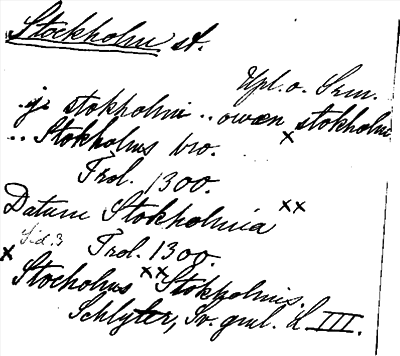 Stockholm st.
Upl. o. Srm.
..ji stokholmi .. owan stokholm
x
.. Stokholms bro.
Trol. 1300.
Datum Stokholmia xx
Sid. 3 Trol. 1300.
x Stocholms xx Stokholmis.
Schlyter, Sv. gml. L III.